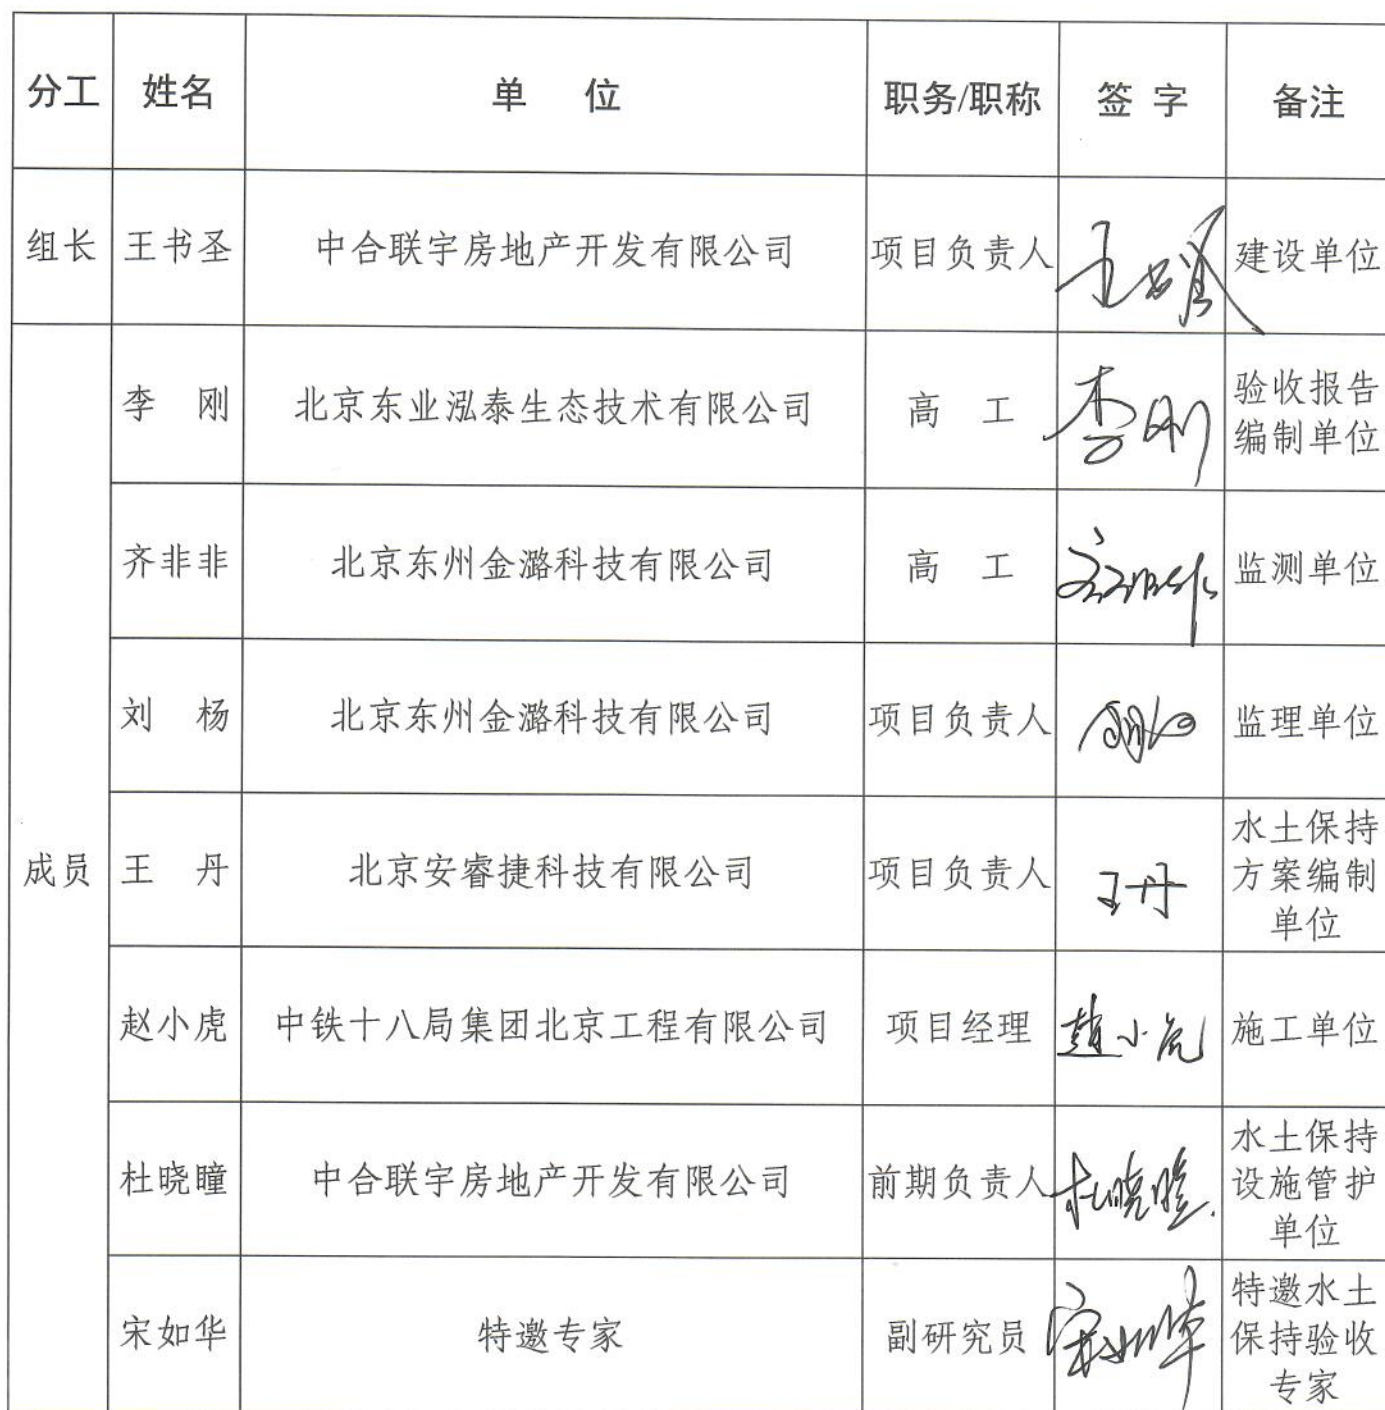 分工 姓名 单 位 职务/职称 签 字 备注
组长 王书圣 中合联宇房地产开发有限公司 项目负责人 建设单位
李 刚 北京东业泓泰生态技术有限公司 高 工 李刚 验收报告
编制单位
齐非非 北京东州金潞科技有限公司 高 工 监测单位
刘 杨 北京东州金潞科技有限公司 项目负责人 监理单位
成员 王 丹 北京安睿捷科技有限公司 项目负责人 王丹 水土保持
方案编制
单位
赵小虎 中铁十八局集团北京工程有限公司 项目经理 赵小虎 施工单位
杜晓瞳 中合联宇房地产开发有限公司 前期负责人 杜晓瞳 水土保持
设施管护
单位
宋如华 特邀专家 副研究员 宋如华 特邀水土
保持验收
专家